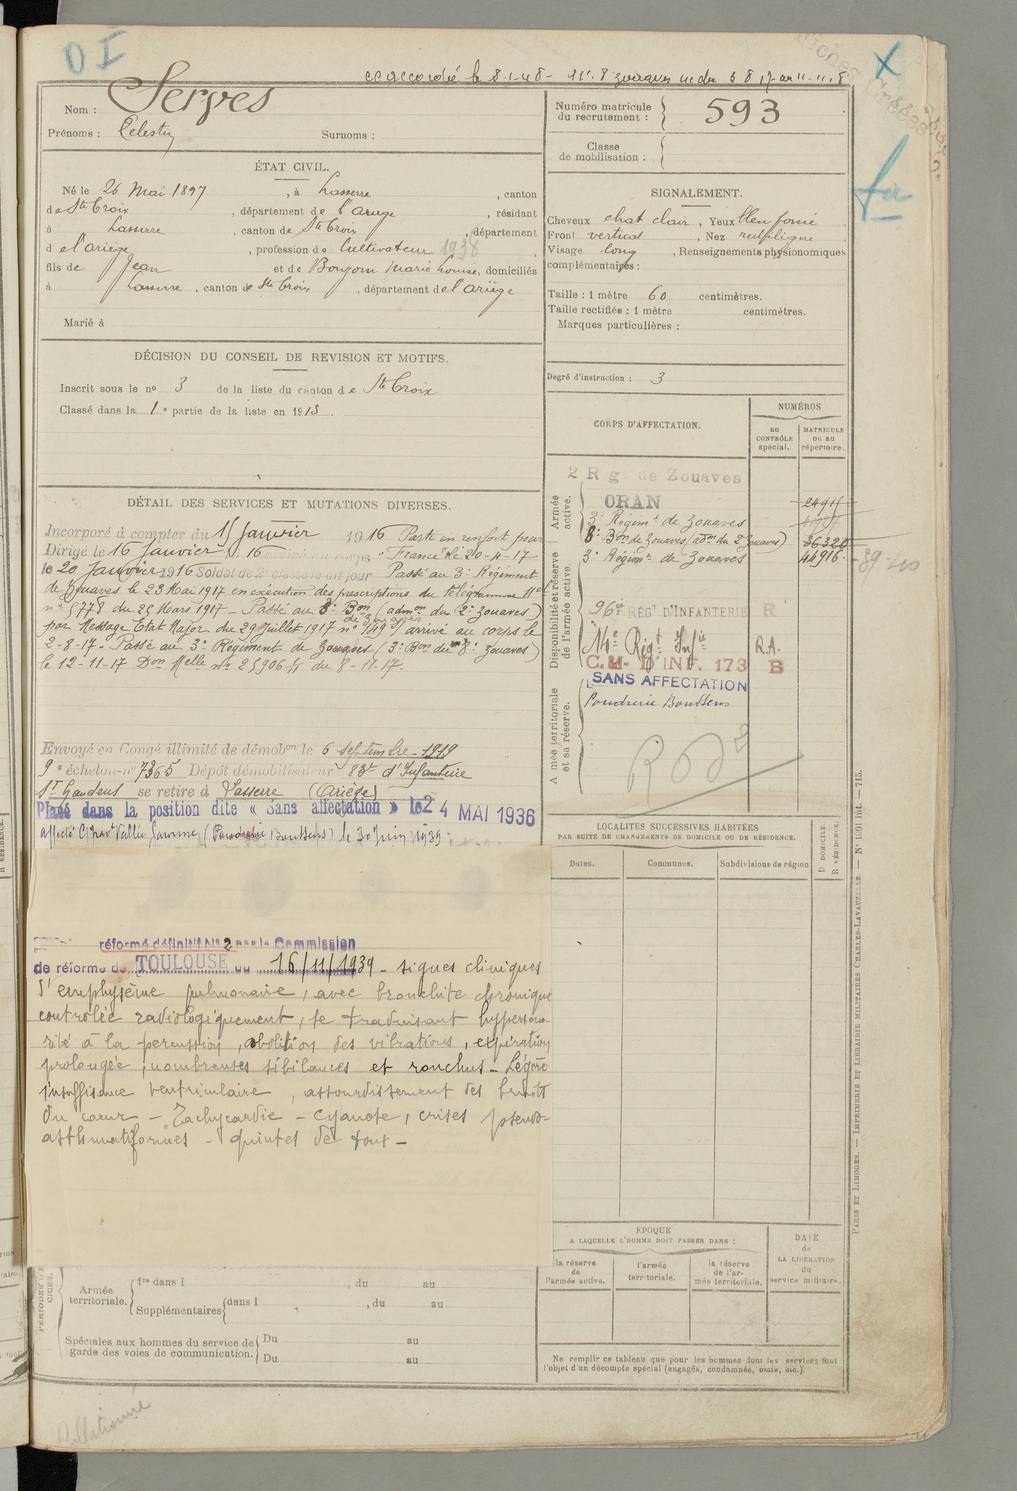 O I
cc accordée le 8-1-48 - 11e 8 zouaves
Fiches Créées
X
Nom : Serves
Prénoms : Celestin Surnoms :
Numéro matricule du recrutement : 593
Classe de mobilisation :
ÉTAT CIVIL.
Né le 26 Mai 1897, à Lasserre, canton
de Ste Croix, département de l'ariege, résidant
à Lasserre, canton de Ste Croix, département
d el'ariège, profession de Cultivateur 1938
fils de Jean et de Boujorn Marie Louise, domiciliés
à Lasserre, canton de Ste Croix, département de l'ariège
Marié à
SIGNALEMENT.
Cheveux chat clair, Yeux bleu foncé
Front vertical, Nez rectiligne
Visage long, Renseignements physionomiques
complémentaires :
Taille : 1 mètre 60 centimètres.
Taille rectifiée : 1 mètre centimètres.
Marques particulières :
Degré d'instruction : 3
DÉCISION DU CONSEIL DE REVISION ET MOTIFS.
Inscrit sous le no 3 de la liste du canton de Ste Croix
Classé dans la 1e partie de la liste en 1915.
DÉTAIL DES SERVICES ET MUTATIONS DIVERSES.
Incorporé à compter du 15 Janvier 1916 Parti en renfort pour
Dirigé le 16 Janvier 16 arrivé au corps "France" le 20-4-17
le 20 Janvier 1916 Soldat de 2e classe le dit jour Passé au 3e Régiment
de Zouaves le 23 Mai 1917 en exécution des prescriptions du télégramme Mel
no 5778 du 25 Mars 1917 - Passé au 8e Bon de zouaves (admon du 2e zouaves)
par Message Etat Major du 29 Juillet 1917 no 9149/ arrivé au corps le
2-8-17 - Passé au 3e Régiment de Zouaves (3e Bon du 3e zouaves)
le 12-11-17 Don Melle no 25906 du 8-11-17.
Envoyé en Congé illimité de démobon le 6 septembre 1919
9e échelon no 7365 Dépôt démobilisateur 83e d'Infanterie
St Gaudens se retire à Lasserre (Ariège)
Placé dans la position dite « Sans affectation » le 24 MAI 1936
(Poudrerie Boussens) le 30 Juin 1939
réformé définitif No 2 par la Commission
de réforme de TOULOUSE du 16/11/1939 - signes cliniques
d'emphysème pulmonaire, avec bronchite chronique
controlée radiologiquement, se traduisant hypersono-
rité à la percussion, abolition des vibrations, expiration
prolongée, nombreuses sibilances et ronchus - Légère
insuffisance ventriculaire, assourdissement des bruits
du cœur - Tachycardie - cyanose, crises pseudo-
asthmatiformes - quintes de toux -
CORPS D'AFFECTATION.
NUMÉROS
au CONTRÔLE spécial.
MATRICULE ou au répertoire.
Armée active.
2 Rg. de Zouaves
ORAN
24911
3e Régimt de Zouaves
8e Bon de Zouaves (admon du 2 Zouaves) 36320
3e Régimt de Zouaves 44916
Disponibilité et réserve de l'armée active.
96e RÉGt D'INFANTERIE R
14e Régt Infie R.A.
C.M. D'INF. 173 B
SANS AFFECTATION
Poudrerie Boussens
Armée territoriale et sa réserve.
LOCALITÉS SUCCESSIVES HABITÉES
PAR SUITE DE CHANGEMENTS DE DOMICILE OU DE RÉSIDENCE.
Dates. Communes. Subdivisions de région
D DOMICILE. R RÉSIDENCE.
ÉPOQUE
A LAQUELLE L'HOMME DOIT PASSER DANS :
DATE de LA LIBÉRATION du service militaire.
la réserve de l'armée active.
l'armée territoriale.
la réserve de l'armée territoriale.
Armée territoriale. 1re dans l , du au
Supplémentaires dans l , du au
Spéciales aux hommes du service de garde des voies de communication. Du au
Du au
Ne remplir ce tableau que pour les hommes dont les services font
l'objet d'un décompte spécial (engagés, condamnés, omis, etc.)
PARIS ET LIMOGES. — IMPRIMERIE ET LIBRAIRIE MILITAIRES CHARLES-LAVAUZELLE. — No 1001 int. — 715.
Collationné